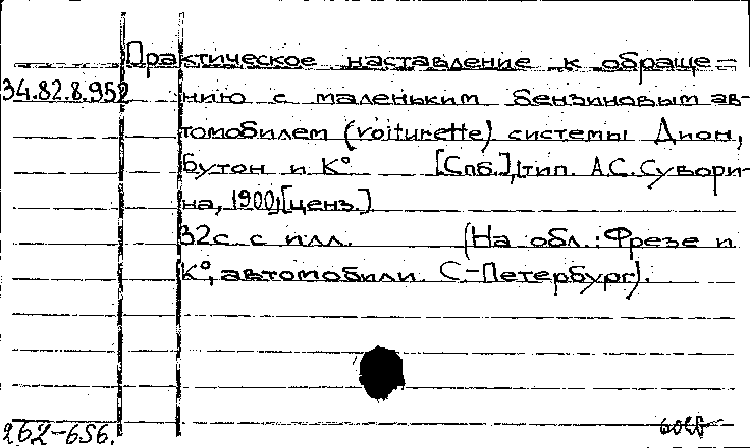 Практическое наставление к обраще=
34.82.8.952 нию с маленьким бензиновым ав-
томобилем (voiturette) системы Дион,
Бутон и К° [Спб.], тип. А.С. Сувори-
на, 1900, [ценз.]
32с. с илл. (На обл.: Фрезе и
К°, автомобили. С.-Петербург).
262-656.